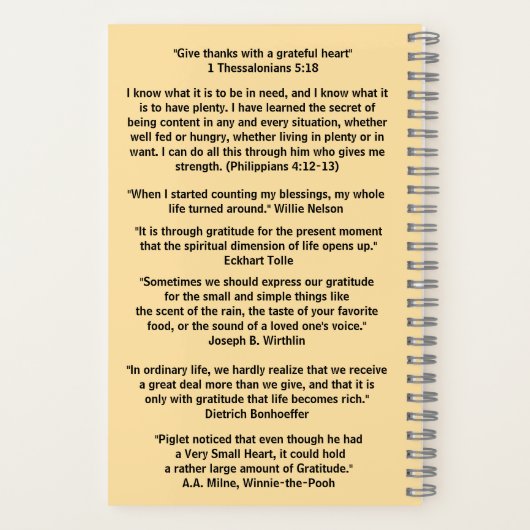 "Give thanks with a grateful heart"
1 Thessalonians 5:18
I know what it is to be in need, and I know what it
is to have plenty. I have learned the secret of
being content in any and every situation, whether
well fed or hungry, whether living in plenty or in
want. I can do all this through him who gives me
strength. (Philippians 4:12-13)
"When I started counting my blessings, my whole
life turned around." Willie Nelson
"It is through gratitude for the present moment
that the spiritual dimension of life opens up."
Eckhart Tolle
"Sometimes we should express our gratitude
for the small and simple things like
the scent of the rain, the taste of your favorite
food, or the sound of a loved one's voice."
Joseph B. Wirthlin
"In ordinary life, we hardly realize that we receive
a great deal more than we give, and that it is
only with gratitude that life becomes rich."
Dietrich Bonhoeffer
"Piglet noticed that even though he had
a Very Small Heart, it could hold
a rather large amount of Gratitude."
A.A. Milne, Winnie-the-Pooh